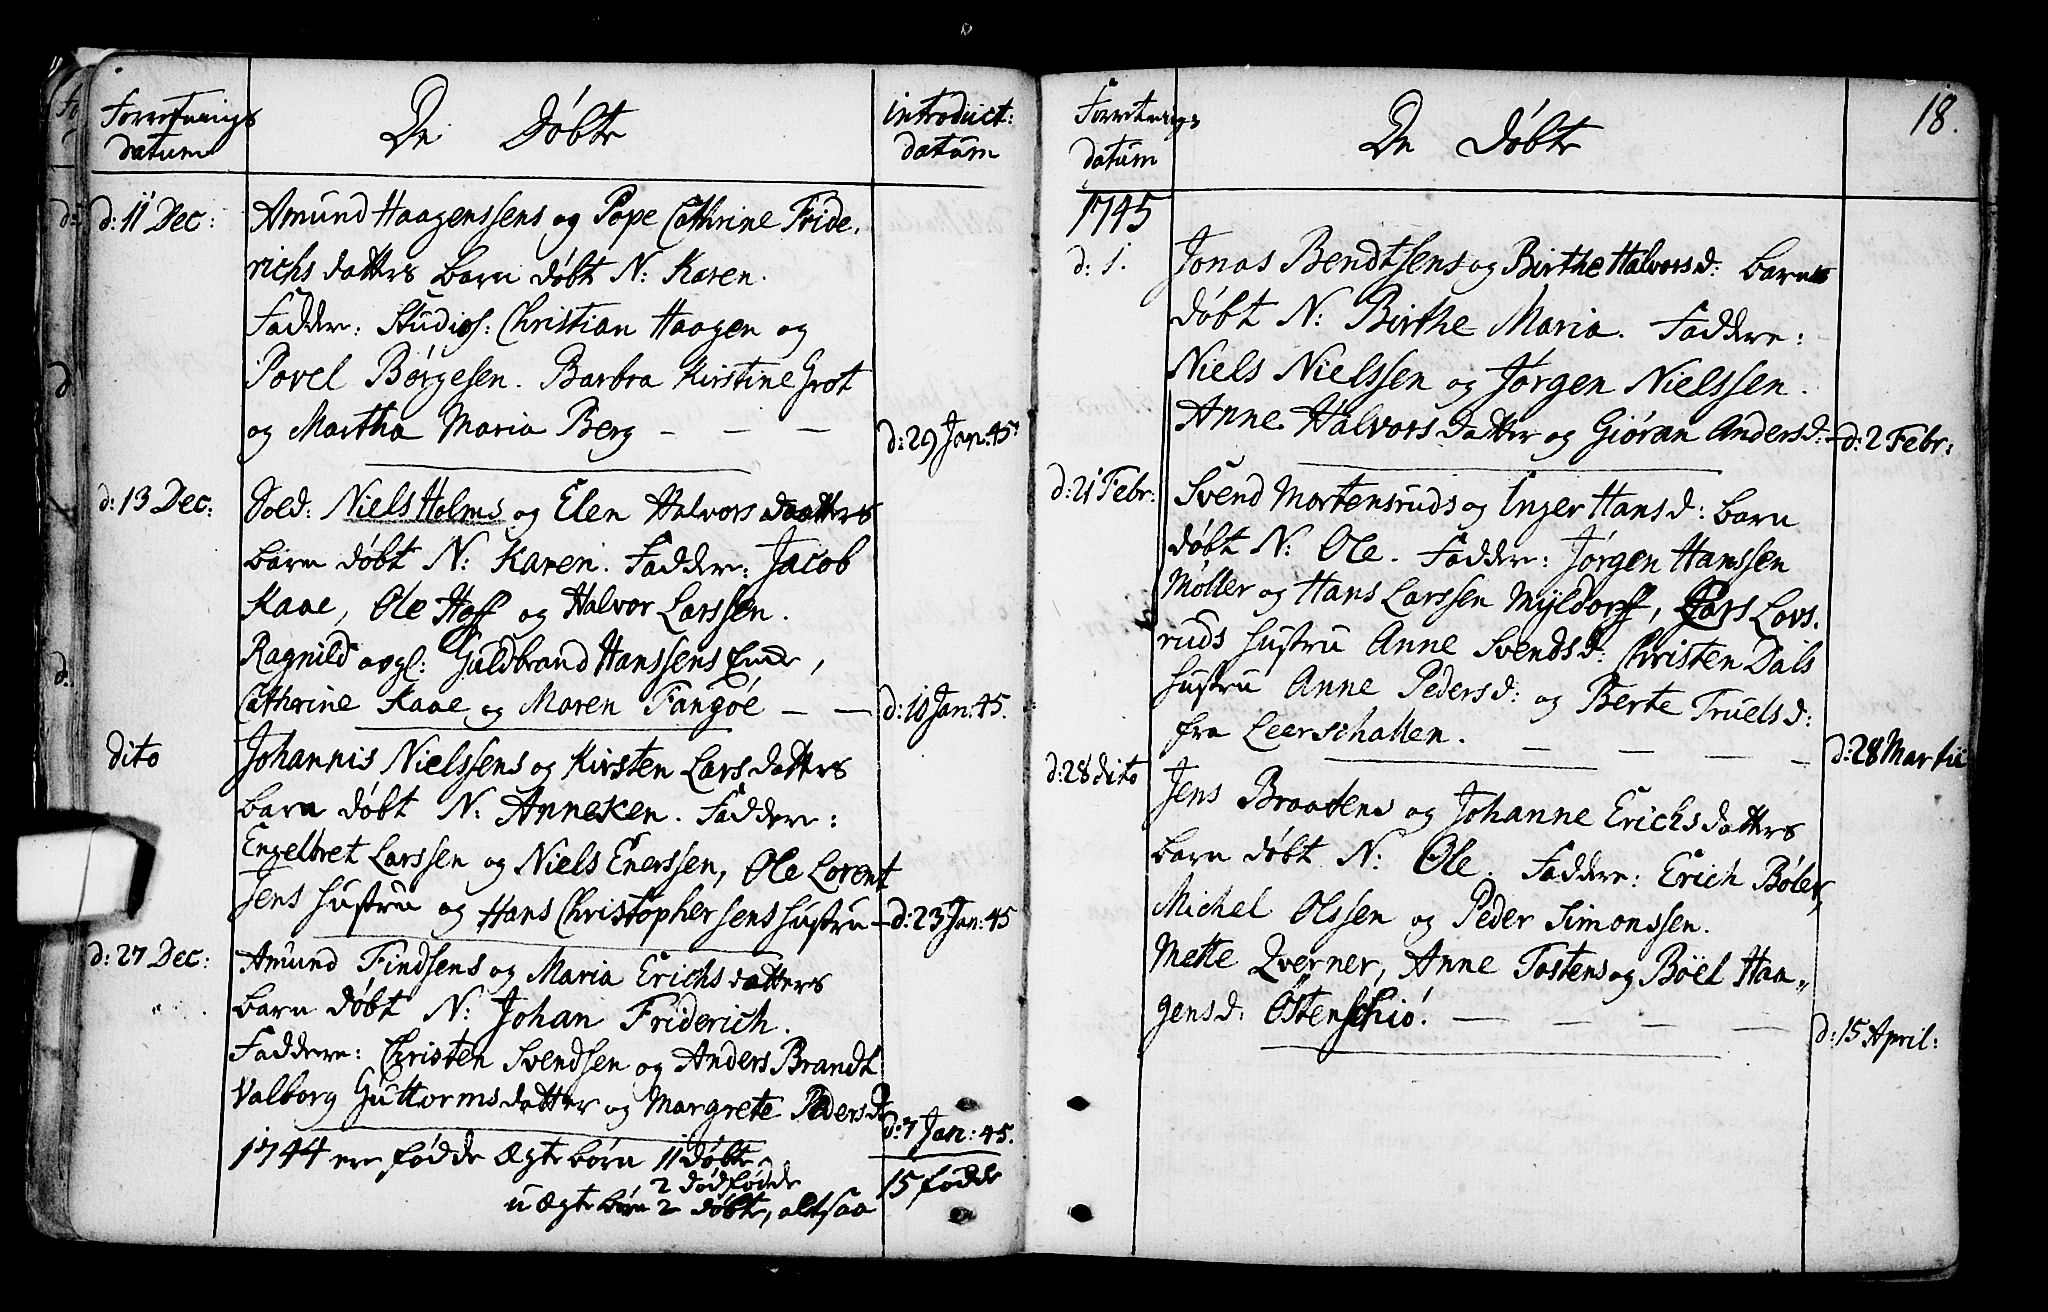 Forretnings
datum
De Døbte
introduct:
datum
d: 11 Dec:
Amund Haagenssens og Pope Cathrine Fride,
richs datters barn døbt N: Karen.
Faddere: Studios: Christian Haagen og
Povel Børgesen. Barbra Kirstine Grot
og Martha Maria Berg — — —
d: 29 Jan: 45.
d: 13 Dec:
Sold: Niels Holms og Elen Halvors datters
barn døbt N: Karen. Faddere: Jacob
Kaae, Ole Hoff og Halvor Larssen.
Ragnild Guldbrand Hanssens
Cathrine Kaae og Maren Fangøe — —
d: 10 Jan: 45.
dito
Johannis Nielssens og Kirsten Lars datters
barn døbt N: Anneken. Faddere:
Engelbret Larssen og Niels Enerssen, Ole Lorent
sens Hustru og Hans Christophersens Hustru —
d: 23 Jan: 45
d: 27 Dec:
Amund Findsens og Maria Erichs datters
barn døbt N: Johan Friderich.
Faddere: Christen Svendsen og Anders Brandt
Valborg Guttorms datter og Margrete Peders d:
d: 7 Jan: 45.
1744 ere fødde Ægte børn 11 døbte
2 dødfødde
u Ægte børn 2 døbte, altsaa
15 fødde
Forretnings
datum
De Døbte
18.
1745
d: 1.
Jonas Bendtsens og Birthe Halvors d: barn
døbt N: Birthe Maria. Faddere:
Niels Nielssen og Jørgen Nielssen.
Anne Halvors datter og Giøran Anders d: —
d: 2 Febr:
d: 21 Febr:
Svend Mortensruds og Inger Hans d: barn
døbt N: Ole. Faddere: Jørgen Hanssen
Møller og Hans Larssen Myldorff, Lars Lovs,
ruds Hustru Anne Svends d: Christen Dals
Hustru Anne Peders d: og Berte Truels d:
fra Leerschallen. — — — —
d: 28 Martii
d: 28 dito
Jens Braatens og Johanne Erichs datters
barn døbt N: Ole. Faddere: Erich Bøler,
Michel Olssen og Peder Simonssen.
Mette Qverner, Anne Tostens og Böel Haa„
gens d: Østenschiø. — — — —
d: 15 April: